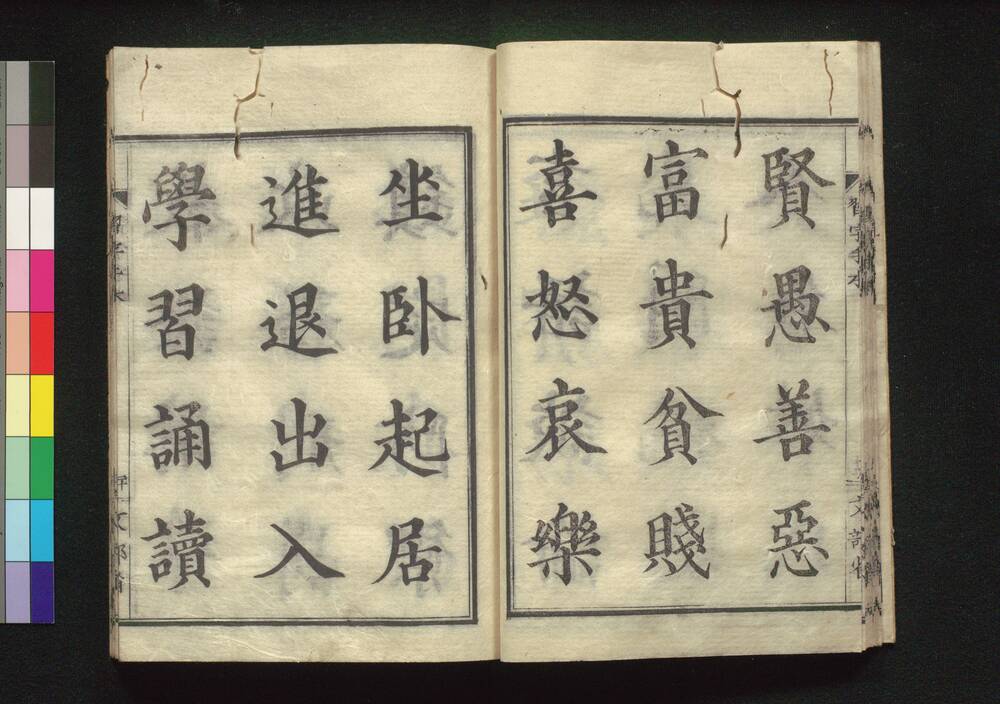 賢愚善惡
富貴貧賤
喜怒哀樂
坐臥起居
進退出入
學習誦讀
習字手本